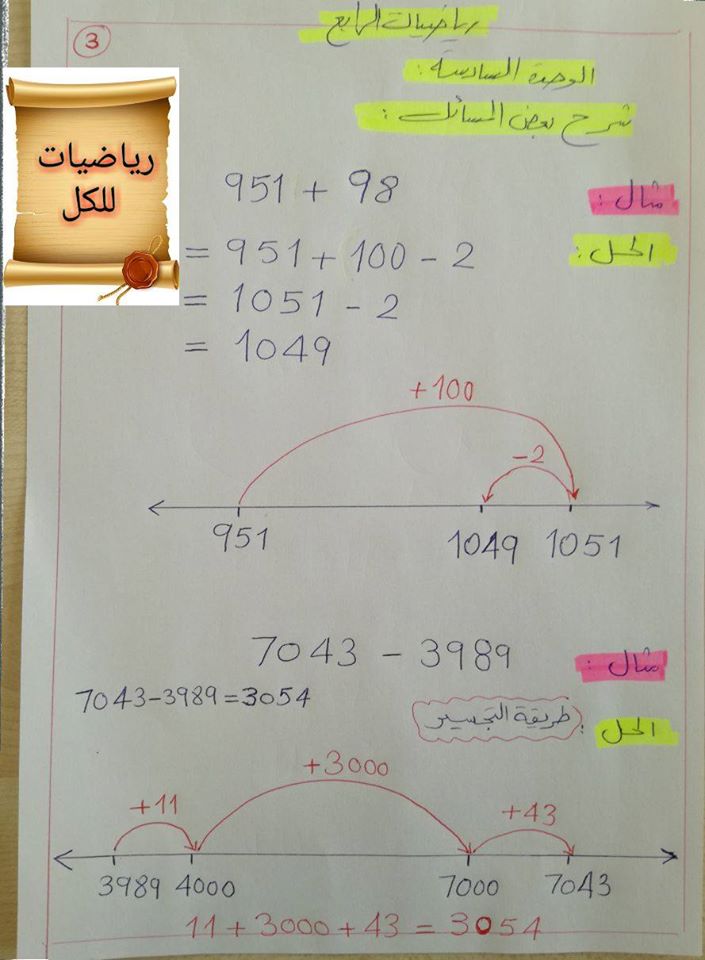 رياضيات الرابع
3
الوحدة السادسة:
شرح بعض المسائل:
رياضيات
للكل
مثال: 951 + 98
الحل: = 951 + 100 - 2
= 1051 - 2
= 1049
+100
-2
951 1049 1051
مثال: 7043 - 3989
7043-3989=3054
الحل: طريقة التجسير
+3000
+11 +43
3989 4000 7000 7043
11 + 3000 + 43 = 3054